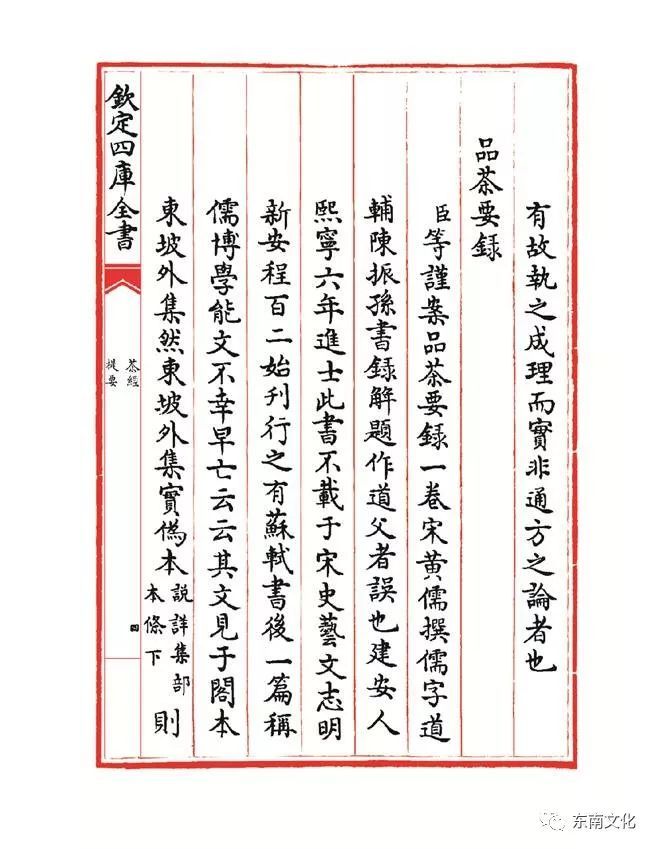 有故執之成理而實非通方之論者也
品茶要録
臣等謹案品茶要録一卷宋黄儒撰儒字道
輔陳振孫書録解題作道父者誤也建安人
熙寧六年進士此書不載于宋史藝文志明
新安程百二始刋行之有蘇軾書後一篇稱
儒博學能文不幸早亡云云其文見于閣本
東坡外集然東坡外集實僞本說詳集部本條下則
欽定四庫全書
茶經
提要
四
东南文化